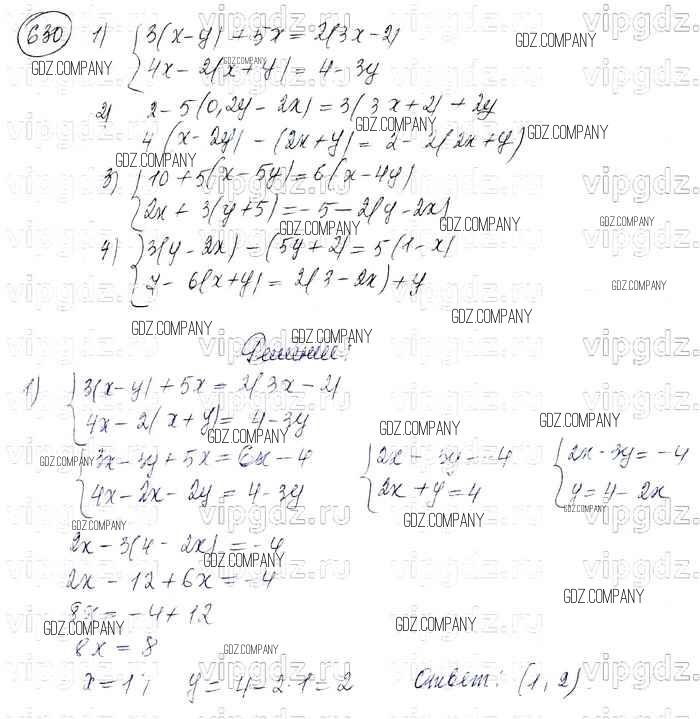 630 1) { 3(x-y) + 5x = 2(3x-2)
4x - 2(x+y) = 4-3y
2) 2-5(0,2y-2x) = 3(3x+2) + 2y
4(x-2y) - (2x+y) = 2-2(2x+y)
3) { 10+5(x-5y) = 6(x-4y)
2x + 3(y+5) = -5-2(y-2x)
4) { 3(y-2x) - (5y+2) = 5(1-x)
7-6(x+y) = 2(3-2x)+y
Решение:
1) { 3(x-y) + 5x = 2(3x-2)
4x-2(x+y) = 4-3y
{ 3x-3y+5x = 6x-4 { 2x-3y=-4 { 2x-3y=-4
4x-2x-2y = 4-3y 2x+y=4 y=4-2x
2x-3(4-2x) = -4
2x-12+6x = -4
8x = -4+12
8x = 8
x=1; y=4-2·1=2 Ответ: (1,2)
GDZ.COMPANY
vipgdz.ru